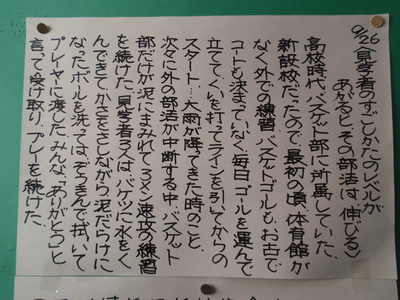 9/26
見学者のすごしかたのレベルが
あがると、その部活は、伸びる〉
高校時代、バスケット部に所属していた。
新設校だったので、最初の頃、体育館が
なく外での練習。バスケットゴールもお古で
コートも決まっていなく毎日ゴールを運んで
立てて、くいを打ってラインを引いてからの
スタート…大雨が降ってきた時のこと。
次々に外の部活が中断する中、バスケット
部だけが泥にまみれて3×3速攻の練習
を続けた。見学者3人は、バケツに水をく
んできて、かさをさしながら、泥だらけに
なったボールを洗ってはぞうきんで拭いて
プレイヤーに渡した。みんな、「ありがとう」と
言って受け取り、プレーを続けた。